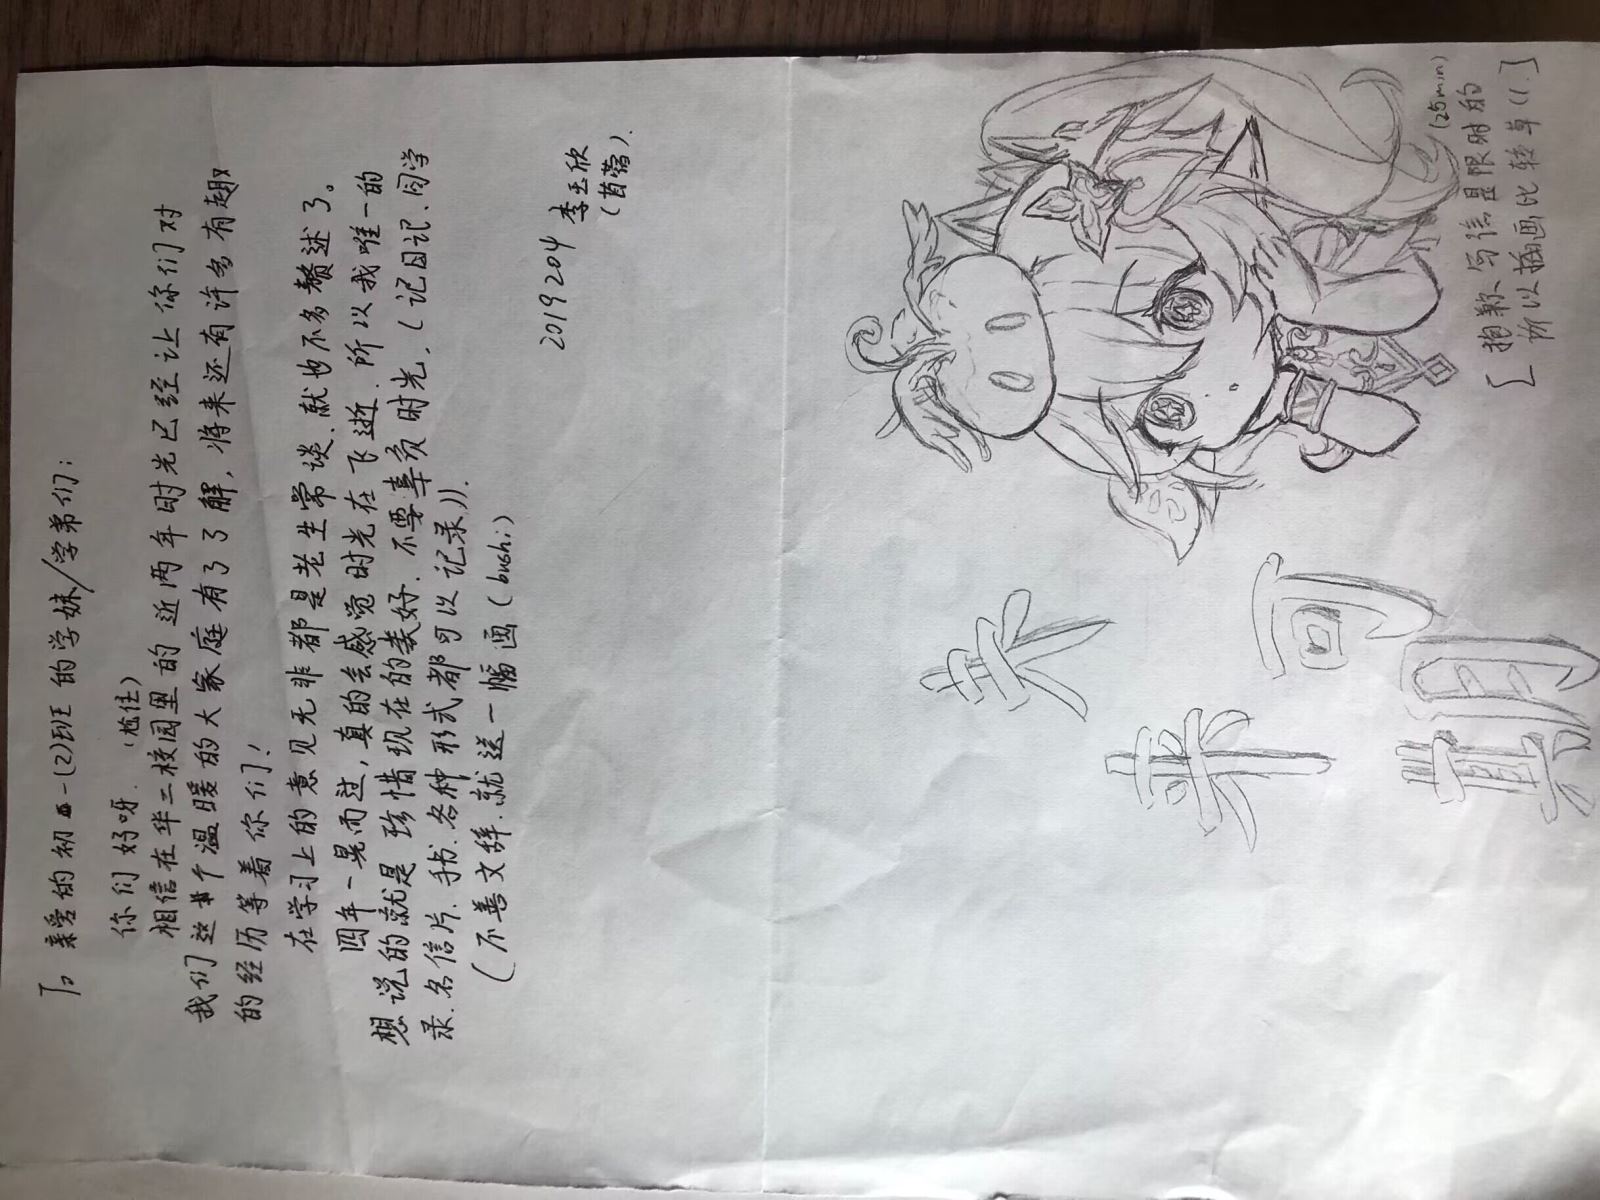 To 亲爱的初一(2)班的学妹/学弟们:
你们好呀.(尬住)
相信在华二校园里的近两年时光已经让你们对
我们这个温暖的大家庭有了了解,将来还有许多有趣
的经历等着你们!
在学习上的意见无非都是老生常谈.就也不多赘述了。
四年一晃而过,真的会感觉时光在飞逝.所以我唯一的
想说的就是珍惜现在的美好.不要辜负时光.(记日记.同学
录.名信片.手书.各种形式都可以记录)).
(不善文辞.就送一幅画(bushi)
2019204 李玉欣
(茵蓉).
未
来
可
期
(25min)
[抱歉.写信是限时的
所以插画比较草((.]